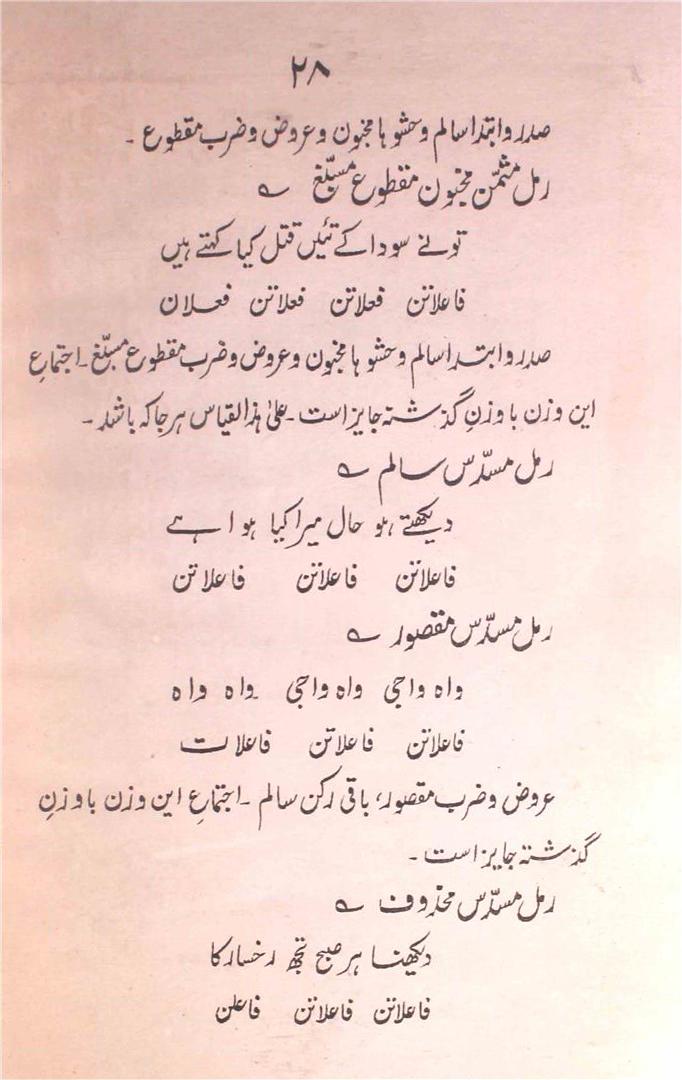 ۲۸
صدر و ابتدا سالم و حشوہا مخبون و عروض و ضرب مقطوع ۔
رمل مثمّن مخبون مقطوع مسبّغ ؎
تو نے سودا کے تئیں قتل کیا کہتے ہیں
فاعلاتن فعلاتن فعلاتن فعلان
صدر و ابتدا سالم و حشوہا مخبون و عروض و ضرب مقطوع مسبّغ ۔ اجتماعِ
این وزن با وزنِ گذشتہ جایز است ۔ علیٰ ہذا القیاس ہر جا کہ باشد ۔
رمل مسدّس سالم ؎
دیکھتے ہو حال میرا کیا ہوا ہے
فاعلاتن فاعلاتن فاعلاتن
رمل مسدّس مقصور ؎
واہ واجی واہ واجی واہ واہ
فاعلاتن فاعلاتن فاعلات
عروض و ضرب مقصور، باقی رکن سالم ۔ اجتماعِ این وزن با وزنِ
گذشتہ جایز است ۔
رمل مسدّس محذوف ؎
دیکھنا ہر صبح تجھ رخسار کا
فاعلاتن فاعلاتن فاعلن